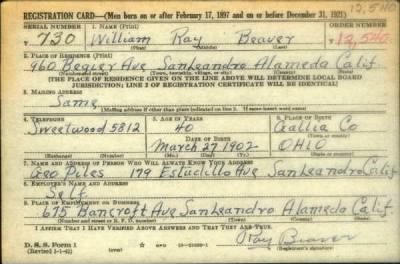 12,540
REGISTRATION CARD—(Men born on or after February 17, 1897 and on or before December 31, 1921)
SERIAL NUMBER 1. NAME (Print) ORDER NUMBER
730 William Ray Beaver 12,540
(First) (Middle) (Last)
2. PLACE OF RESIDENCE (Print)
960 Begier Ave San Leandro Alameda Calif.
(Number and street) (Town, township, village, or city) (County) (State)
[THE PLACE OF RESIDENCE GIVEN ON THE LINE ABOVE WILL DETERMINE LOCAL BOARD
JURISDICTION; LINE 2 OF REGISTRATION CERTIFICATE WILL BE IDENTICAL]
3. MAILING ADDRESS
Same
[Mailing address if other than place indicated on line 2. If same insert word same]
4. TELEPHONE 5. AGE IN YEARS 6. PLACE OF BIRTH
Sweetwood 5812 40 Gallia Co
DATE OF BIRTH (Town or county)
March 27 1902 OHIO
(Exchange) (Number) (Mo.) (Day) (Yr.) (State or country)
7. NAME AND ADDRESS OF PERSON WHO WILL ALWAYS KNOW YOUR ADDRESS
Geo Piles 179 Estudillo Ave San Leandro Calif
8. EMPLOYER'S NAME AND ADDRESS
Self
9. PLACE OF EMPLOYMENT OR BUSINESS
675 Bancroft Ave San Leandro Alameda Calif
(Number and street or R. F. D. number) (Town) (County) (State)
I AFFIRM THAT I HAVE VERIFIED ABOVE ANSWERS AND THAT THEY ARE TRUE.
D. S. S. Form 1
(Revised 1-1-42) GPO
Ray Beaver
(Registrant's signature)